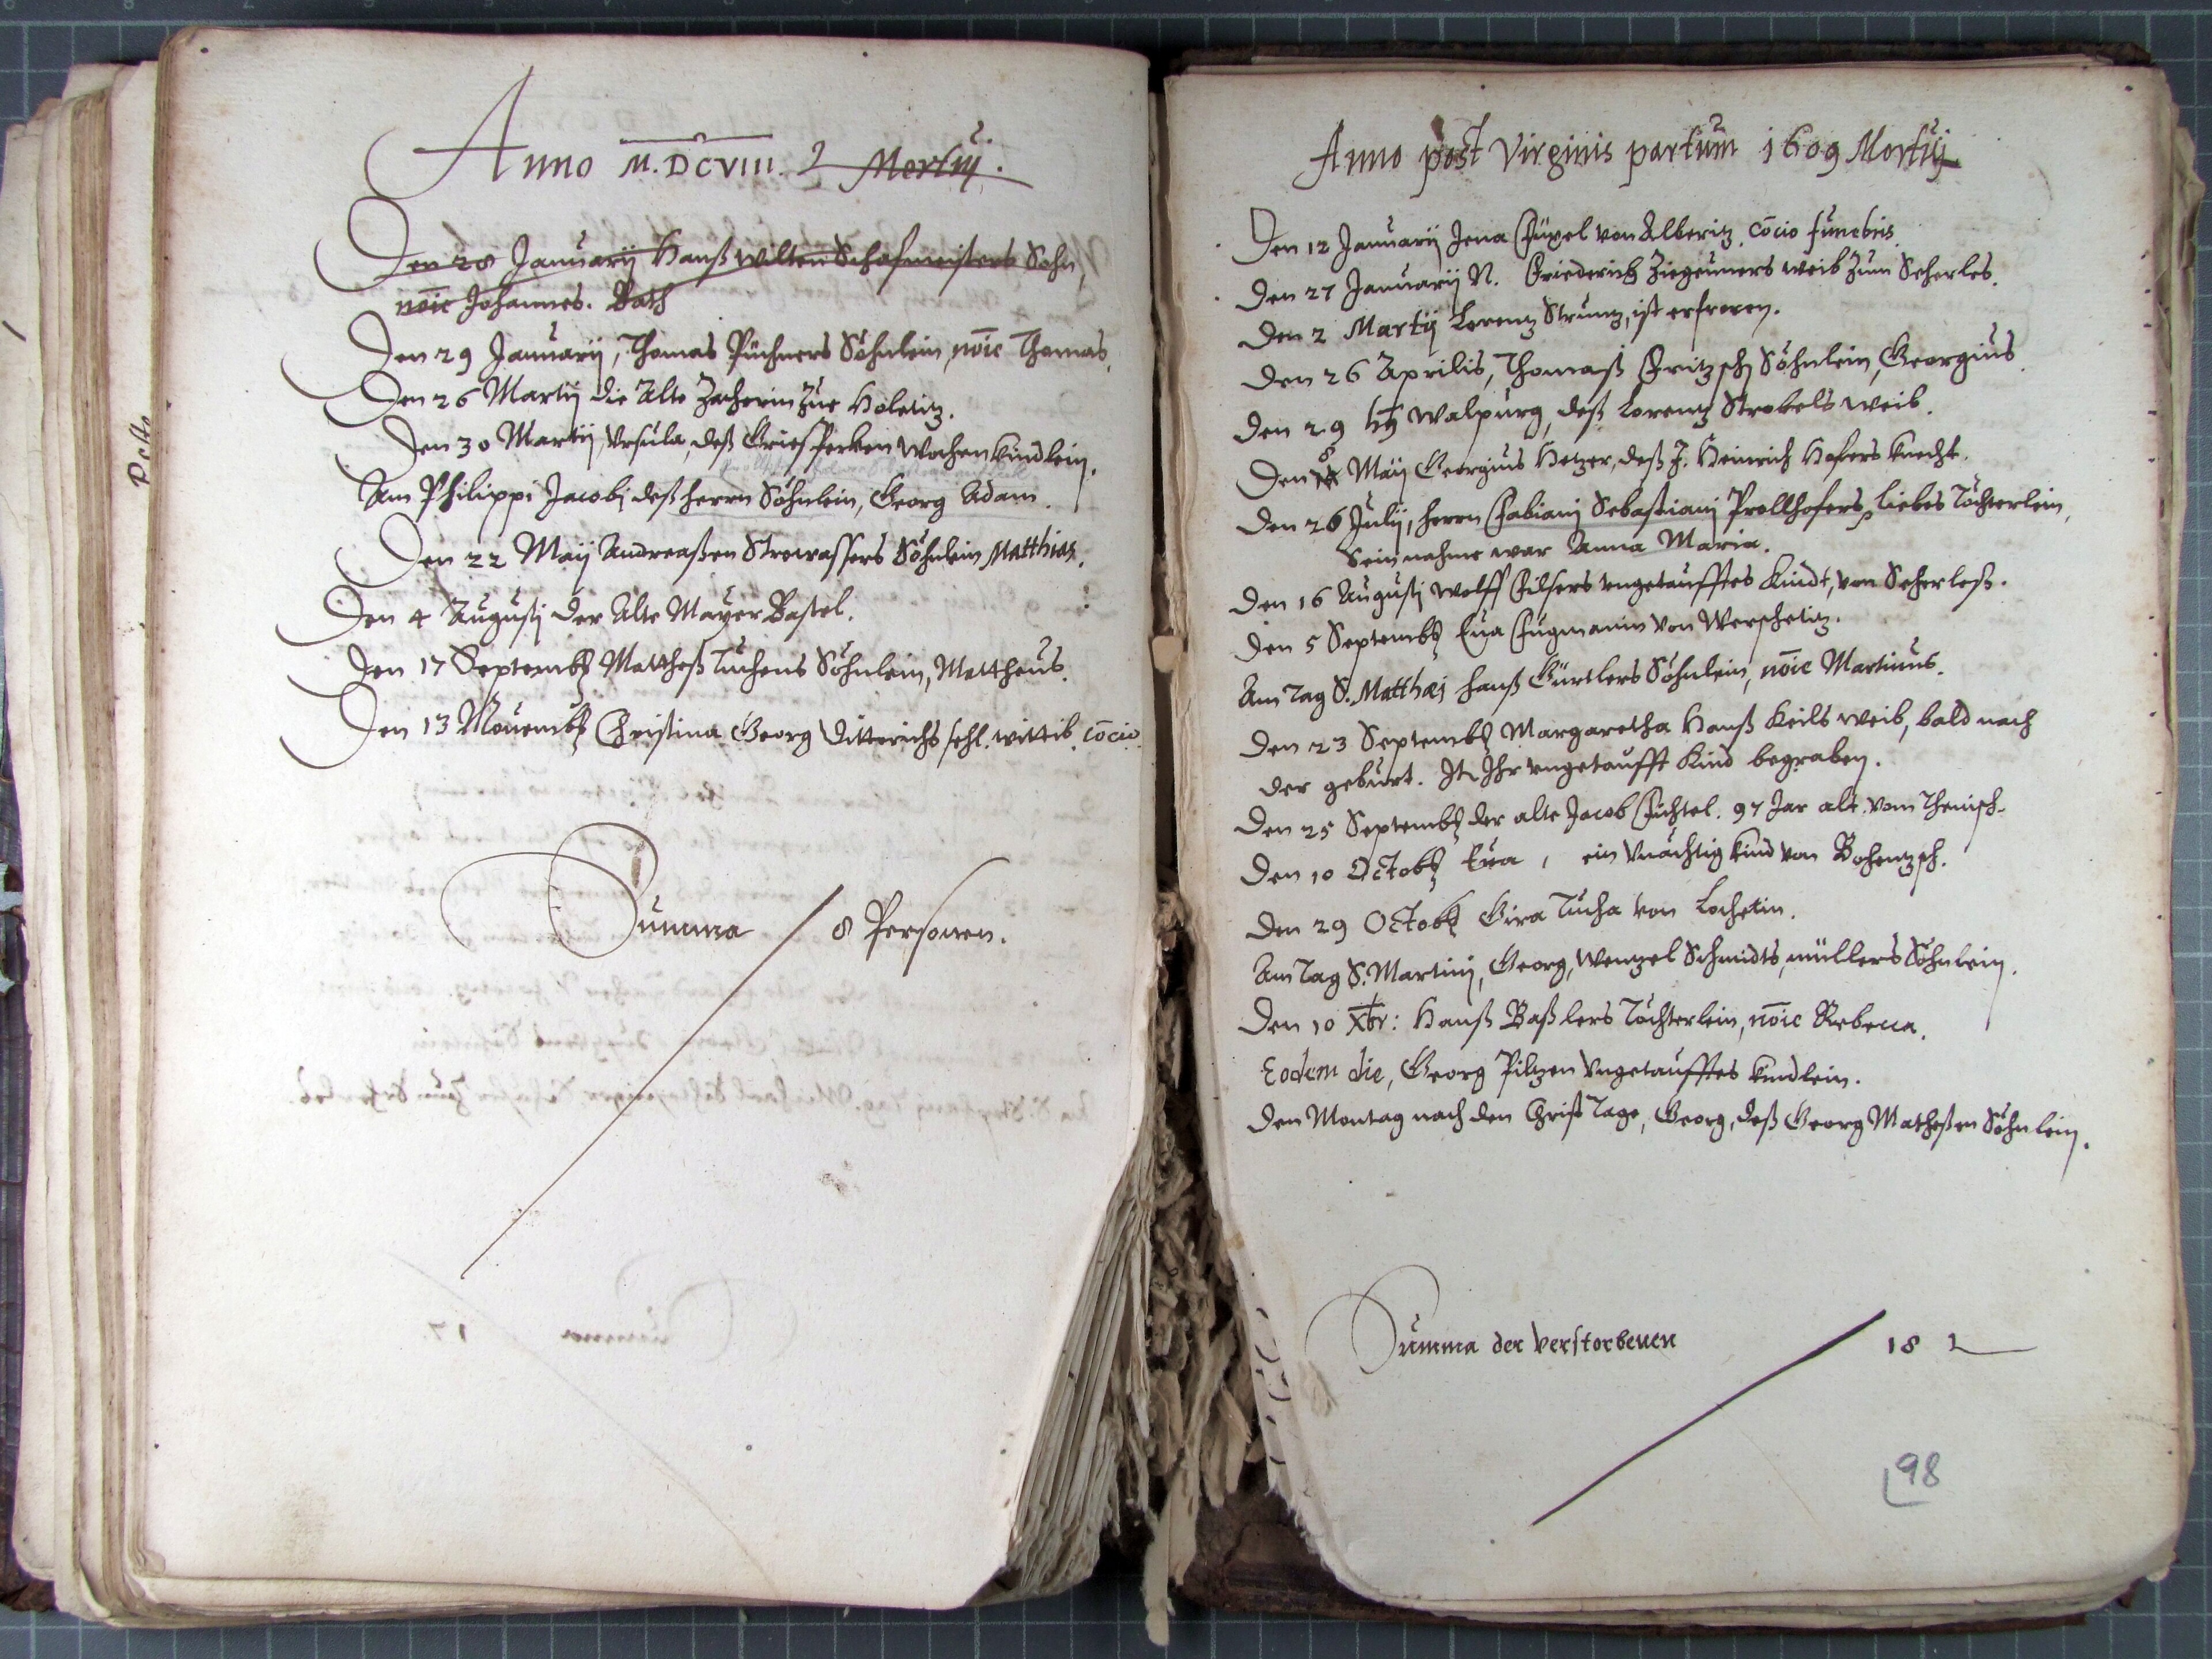 Anno M.DCVIII. Mortuj.
Den 28 Januarij Hanß Wilten Schafmeisters Sohn,
nōie Johannes. Bath
Den 29 Januarij, Thomas Püchners Söhnlein, nōie Thomas.
Den 26 Martij die Alte Zacherin Zue Holetitz.
Den 30 Martij, Ursula, deß Griessferken Wochenkindlein.
Am Philippi Jacobj deß herrn Söhnlein, Georg Adam.
Den 22 Maij Andreaßen Strowassers Söhnlein Matthias.
Den 4 Augustj der Alte Mayer Bastel.
Den 17 Septemb. Matthes Tuchens Söhnlein, Mattheus.
Den 13 Nouemb. Christina Georg Ditterichs sehl. wittib. cōcio.
Summa / 8 Personen.
Anno post Virginis partum 1609 Mortuj
Den 12 Januarij Jena Füxel von Alberitz. cōcio funebris.
Den 27 Januarij N. Friederich Ziegeuners weib Zum Scherles.
Den 2 Martij Lorentz Strunz, ist erfroren.
Den 26 Aprilis, Thomaß Fritzsch Söhnlein, Georgius.
Den 29 Walpurg, deß Lorentz Strobels weib.
Den 8 Maij Georgius Hetzer, deß J. Heinrich Hofers knecht.
Den 26 Julij, herrn Fabianj Sebastianj Prollhofers liebes Töchterlein,
Sein nahme war Anna Maria.
Den 16 Augustj Wolff Filsers ungetaufftes Kindt, von Scherleß.
Den 5 Septemb. Eua Fugmanin von Werschetitz.
Am Tag S. Matthæj hanß Gürtlers Söhnlein, nōie Martinus.
Den 23 Septemb. Margaretha Hanß Keils weib, bald nach
der geburt. It. Ihr ungetaufft Kind begraben.
Den 25 Septemb. der alte Jacob Füchtel. 97 Jar alt. vom Theusch.
Den 10 Octob. Eua, ein Vnächtig kind von Bohentzsch.
Den 29 Octob. Gira Tucha von Lochetin.
Am Tag S. Martinj, Georg, Wentzel Schmidts, müllers Söhnlein.
Den 10 Xbr: Hanß Baßlers Töchterlein, nōie Rebecca.
Eodem die, Georg Piltzen Ungetaufftes kindlein.
Den Montag nach den Christ Tage, Georg, deß Georg Matheßen Söhnlein.
Summa der Verstorbenen / 18
98